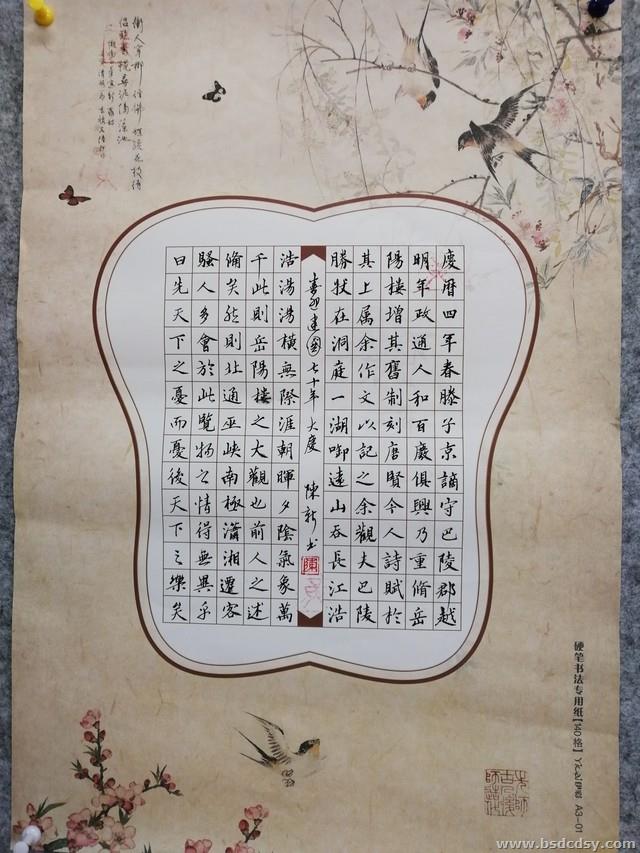 慶曆四年春滕子京謫守巴陵郡越
明年政通人和百廢俱興乃重脩岳
陽樓增其舊制刻唐賢今人詩賦於
其上属余作文以記之余觀夫巴陵
勝狀在洞庭一湖啣遠山吞長江浩
喜迎建國七十年大慶 陳新书
浩湯湯橫無際涯朝暉夕陰氣象萬
千此則岳陽樓之大觀也前人之述
俻矣然則北通巫峽南極瀟湘遷客
騷人多會於此覽物之情得無異乎
曰先天下之憂而憂後天下之樂矣
硬笔书法专用纸【140格】 A3-01
www.bsdcdsy.com